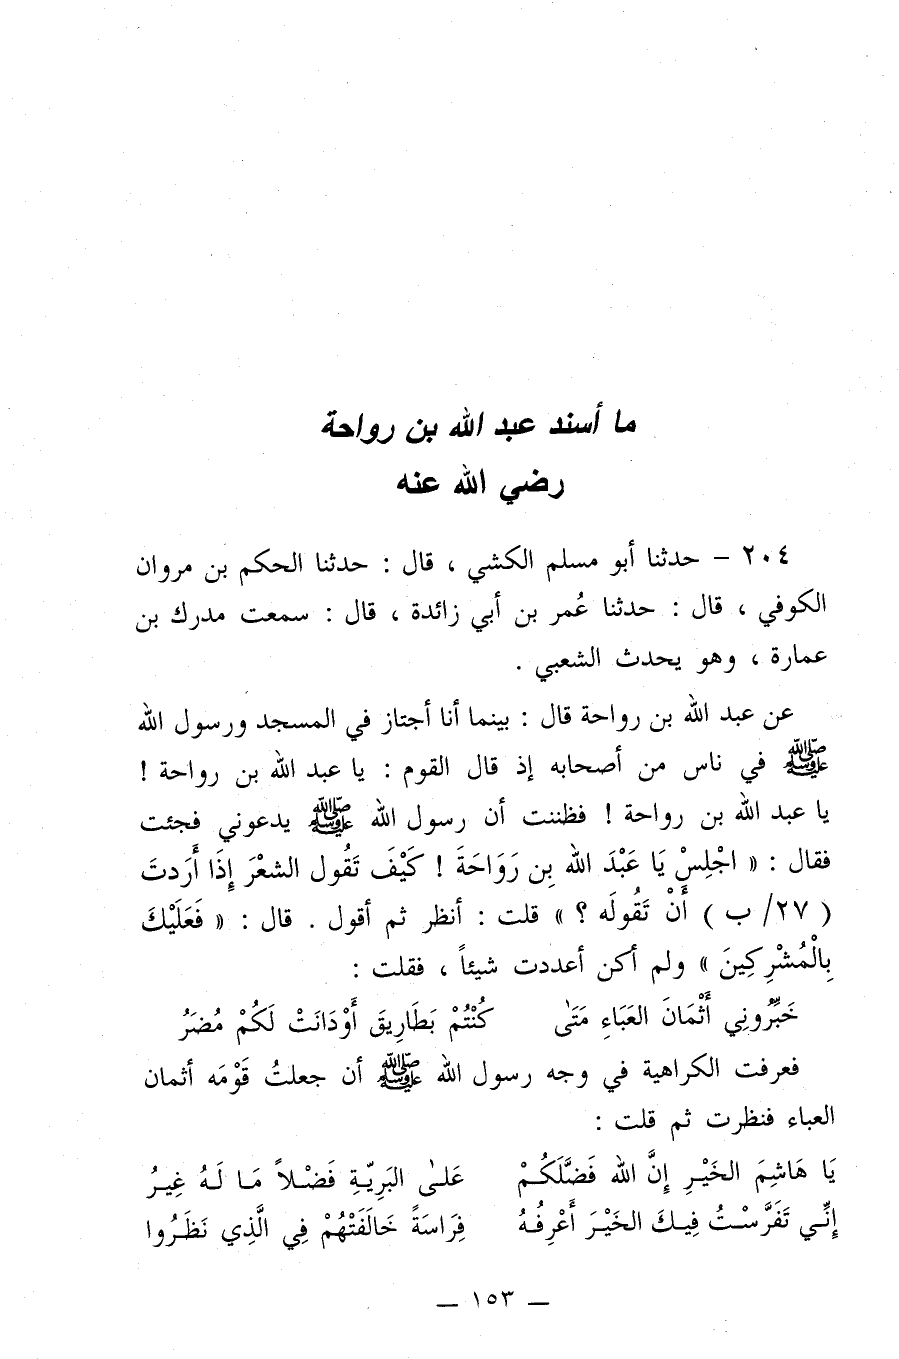 ما أسند عبد الله بن رواحة
رضي الله عنه
٢٠٤ – حدثنا أبو مسلم الكشي ، قال : حدثنا الحكم بن مروان
الكوفي ، قال : حدثنا عُمر بن أبي زائدة ، قال : سمعت مدرك بن
عمارة ، وهو يحدث الشعبي .
عن عبد الله بن رواحة قال : بينما أنا أجتاز في المسجد ورسول الله
ﷺ في ناس من أصحابه إذ قال القوم : يا عبد الله بن رواحة !
يا عبد الله بن رواحة ! فظننت أن رسول الله ﷺ يدعوني فجئت
فقال : « اجْلِسْ يَا عَبْدَ الله بِن رَوَاحَةَ ! كَيْفَ تَقُول الشعْرَ إِذَا أَردتَ
( ٢٧/ ب ) أَنْ تَقُولَه ؟ » قلت : أنظر ثم أقول . قال : « فَعَلَيْكَ
بِالْمُشْرِكِينَ » ولم أكن أعددت شيئاً ، فقلت :
خَبِّرُونِي أَثْمَانَ العَبَاءِ مَتَى كُنْتُمْ بَطَارِيقَ أَوْدَانَتْ لَكُمْ مُضَرُ
فعرفت الكراهية في وجه رسول الله ﷺ أن جعلتُ قَوْمَه أثمان
العباء فنظرت ثم قلت :
يَا هَاشِمَ الخَيْرِ إِنَّ الله فَضَّلَكُمْ عَلىٰ البَرِيّةِ فَضْلاً مَا لَهُ غِيرُ
إِنِّي تَفَرَّسْتُ فِيكَ الخَيْرَ أَعْرِفُهُ فِرَاسَةً خَالَفَتْهُمْ فِي الَّذِي نَظَرُوا
— ١٥٣ —